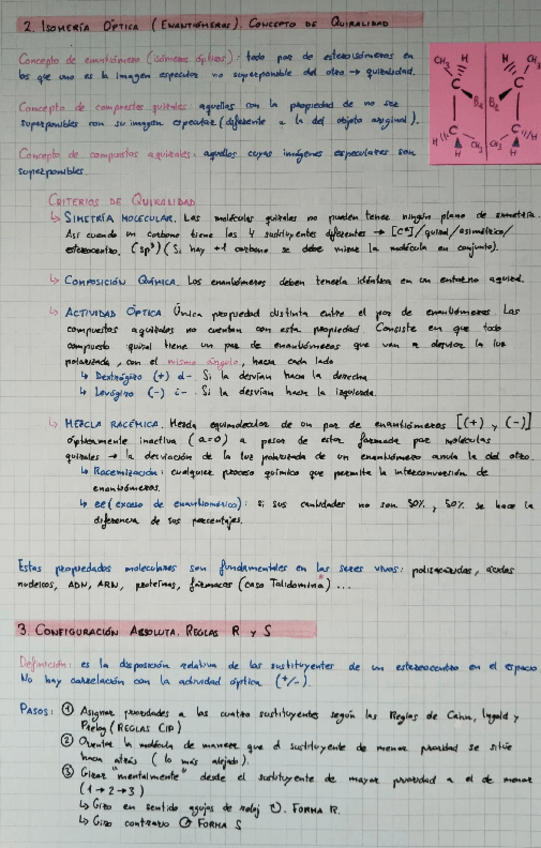 2. ISOMERÍA ÓPTICA (ENANTIÓMEROS). CONCEPTO DE QUIRALIDAD
Concepto de enantiómero (isómeros ópticos): todo par de estereoisómeros en
los que uno es la imagen especular no superponible del otro → quiralidad.
Concepto de compuestos quirales: aquellos con la propiedad de no ser
superponibles con su imagen especular (diferente a la del objeto original).
Concepto de compuestos aquirales: aquellos cuyas imágenes especulares son
superponibles.
CH₃ H H CH₃
Br Br
H CH₃ CH₃ H
H H
CRITERIOS DE QUIRALIDAD
↳ SIMETRÍA MOLECULAR. Las moléculas quirales no pueden tener ningún plano de simetría.
Así cuando un carbono tiene los 4 sustituyentes diferentes → [C*]/quiral/asimétrico/
estereocentro. (sp³) (Si hay +1 carbono se debe mirar la molécula en conjunto).
↳ COMPOSICIÓN QUÍMICA. Los enantiómeros deben tenerla idéntica en un entorno aquiral.
↳ ACTIVIDAD ÓPTICA Única propiedad distinta entre el par de enantiómeros. Los
compuestos aquirales no cuentan con esta propiedad. Consiste en que todo
compuesto quiral tiene un par de enantiómeros que van a desviar la luz
polarizada, con el mismo ángulo, hacia cada lado
↳ Dextrógiro (+) d- Si la desvían hacia la derecha.
↳ Levógiro (-) i- Si la desvían hacia la izquierda.
↳ MEZCLA RACÉMICA. Mezcla equimolecular de un par de enantiómeros [(+) y (-)]
ópticamente inactiva (a=0) a pesar de estar formada por moléculas
quirales → la desviación de la luz polarizada de un enantiómero anula la del otro.
↳ Racemización: cualquier proceso químico que permita la interconversión de
enantiómeros.
↳ ee (exceso de enantiomérico): si sus cantidades no son 50%, 50% se hace la
diferencia de sus porcentajes.
Estas propiedades moleculares son fundamentales en los seres vivos: polisacáridos, ácidos
nucleicos, ADN, ARN, proteínas, fármacos (caso Talidomina*) ...
3. CONFIGURACIÓN ABSOLUTA. REGLAS R Y S
Definición: es la disposición relativa de los sustituyentes de un estereocentro en el espacio.
No hay correlación con la actividad óptica (+/-).
PASOS: ① Asignar prioridades a los cuatro sustituyentes según las Reglas de Cahn, Ingold y
Prelog (REGLAS CIP)
② Orientar la molécula de manera que el sustituyente de menor prioridad se sitúe
hacia atrás (lo más alejado).
③ Girar "mentalmente" desde el sustituyente de mayor prioridad a el de menor
(1→2→3)
↳ Giro en sentido agujas de reloj ↻. FORMA R.
↳ Giro contrario ↺ FORMA S